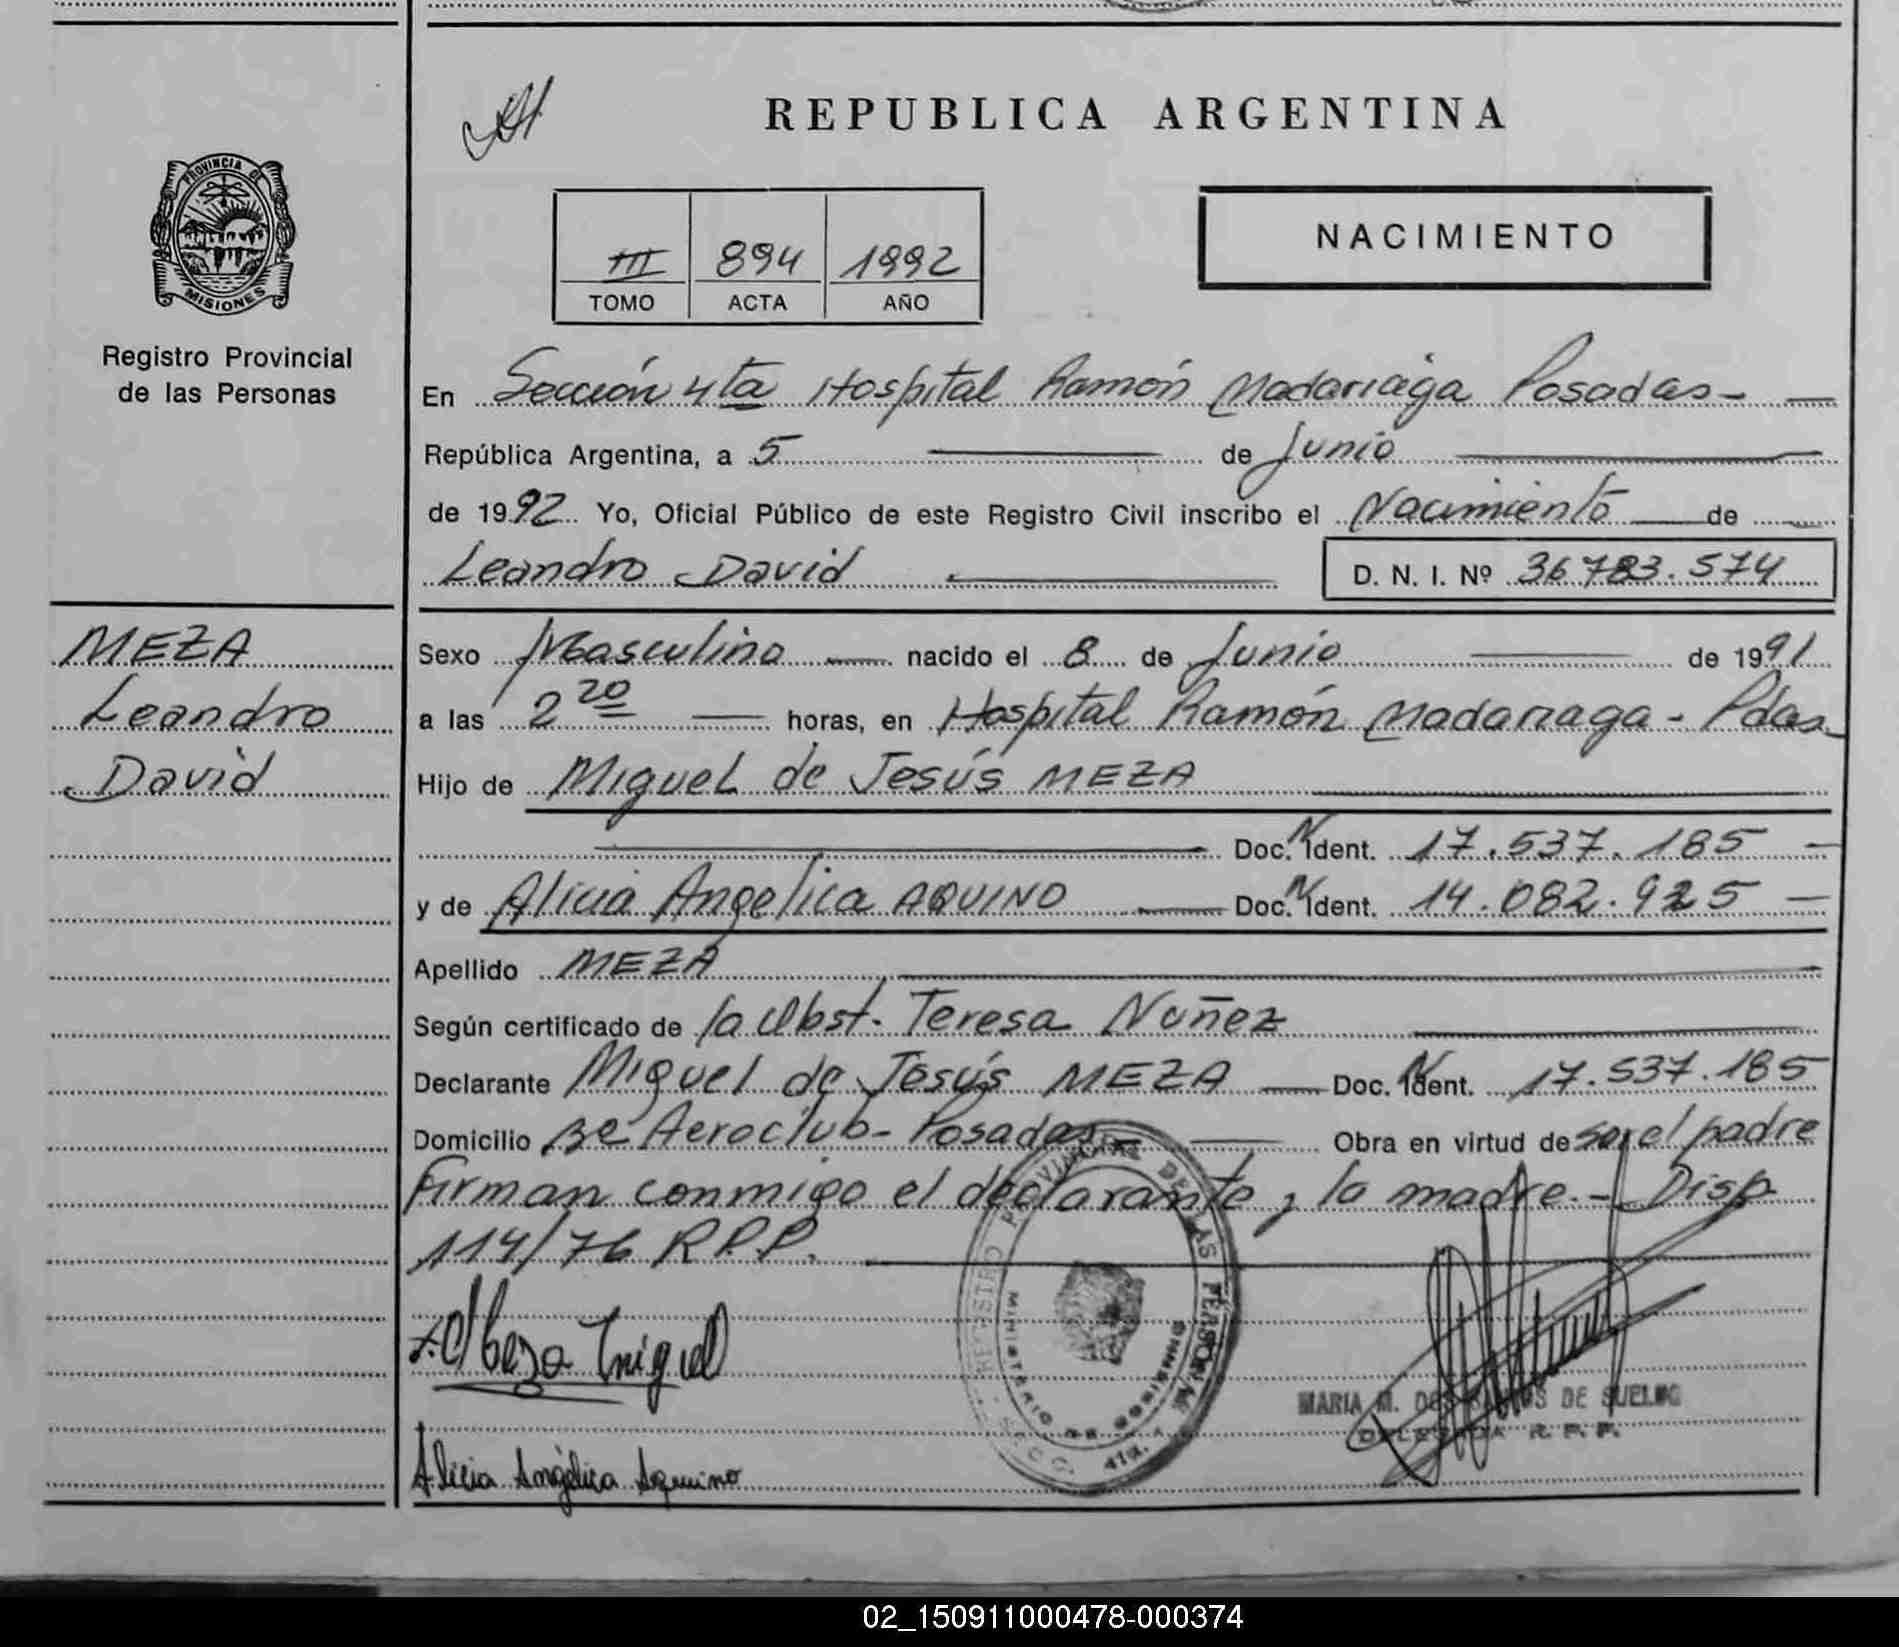 REPUBLICA ARGENTINA
PROVINCIA DE
MISIONES
Registro Provincial
de las Personas
III 894 1992
TOMO ACTA AÑO
NACIMIENTO
En Sección 4ta Hospital Ramón Madariaga Posadas-
República Argentina, a 5 de Junio
de 1992 Yo, Oficial Público de este Registro Civil inscribo el Nacimiento de
Leandro David D. N. I. Nº 36783.574
MEZA
Leandro
David
Sexo Masculino nacido el 8 de Junio de 1991
a las 2 20 horas, en Hospital Ramón Madariaga - Pdas
Hijo de Miguel de Jesús MEZA
Doc. N. Ident. 17.537.185
y de Alicia Angelica AQUINO Doc. N. Ident. 14.082.925
Apellido MEZA
Según certificado de la Obst. Teresa Nuñez
Declarante Miguel de Jesús MEZA Doc. N. Ident. 17.537.185
Domicilio Be Aeroclub - Posadas - Obra en virtud de ser el padre
Firman conmigo el declarante, la madre.- Disp
114/76 R.P.P.
Meza Miguel
REGISTRO PROVINCIAL DE LAS PERSONAS
MINISTERIO DE GOBIERNO
MARIA M. DE DE
DELEGADA R.P.P.
Alicia Angélica Aquino
02_150911000478-000374